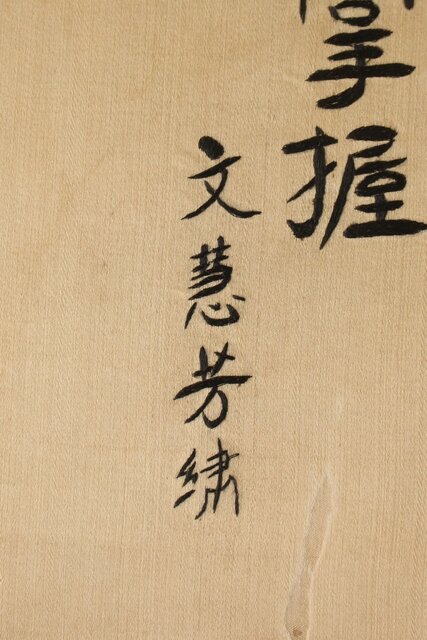 掌握
文慧芳绣